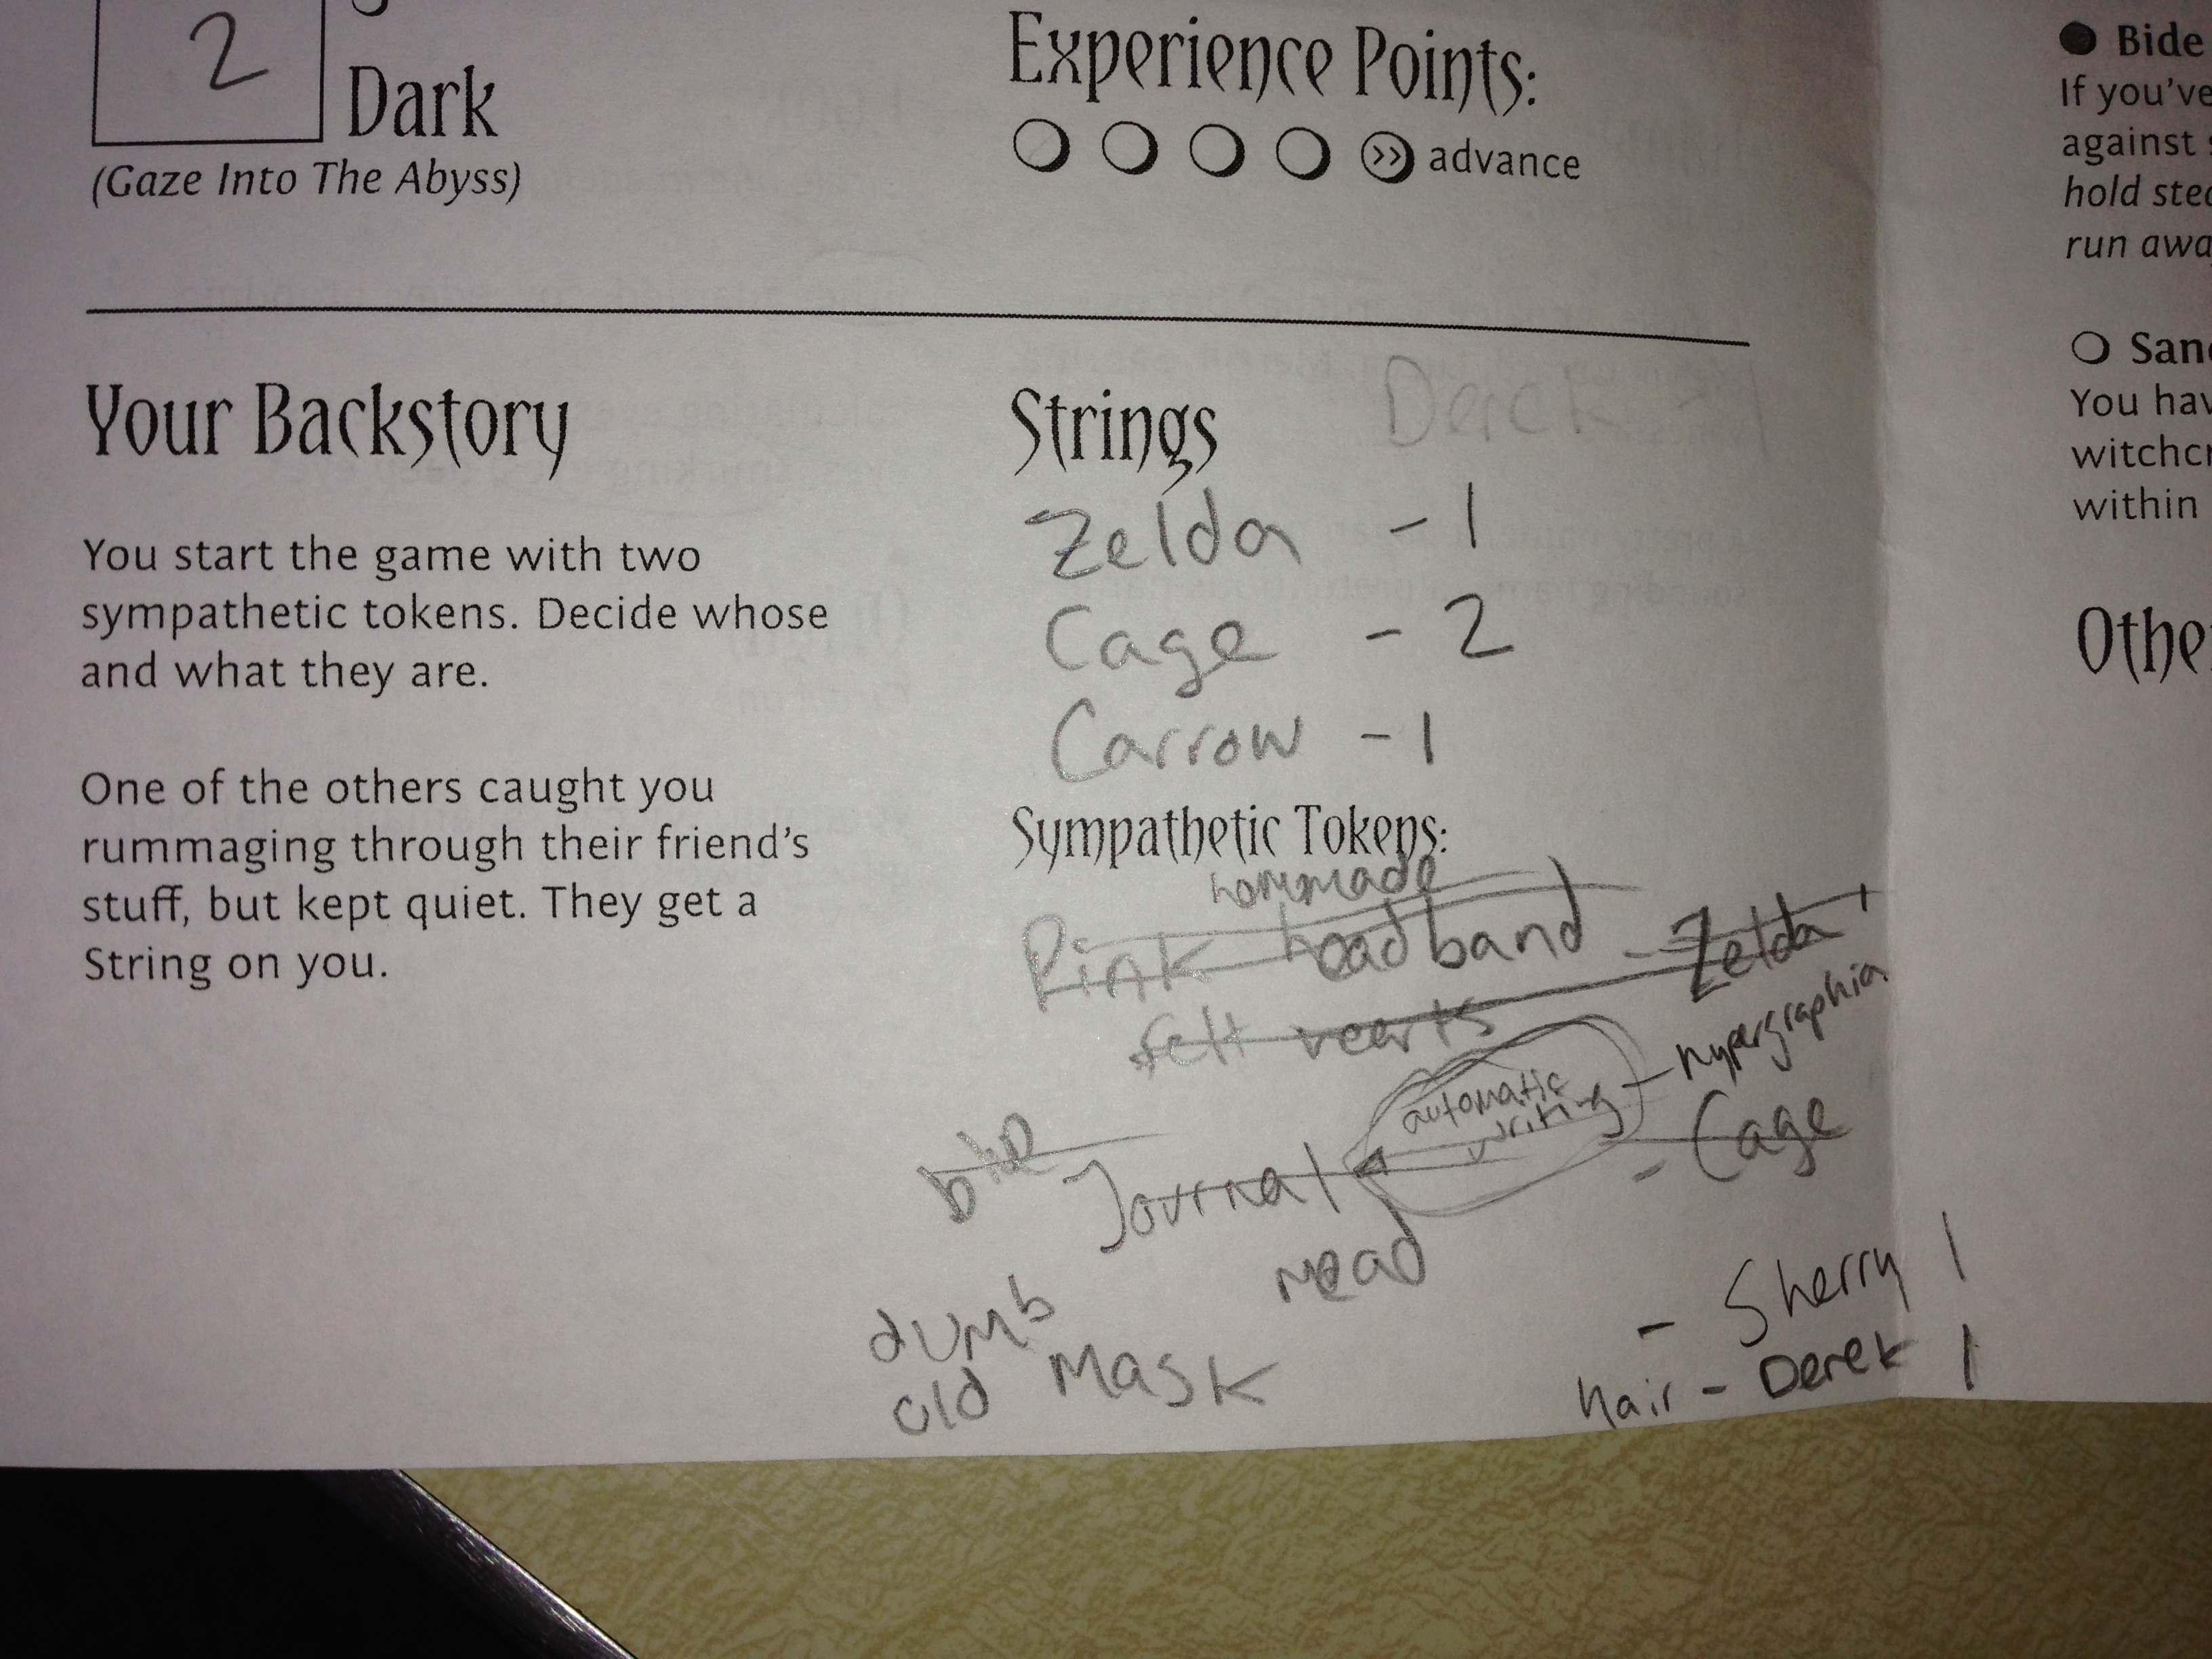 2
Dark
(Gaze Into The Abyss)
Experience Points:
advance
Your Backstory
You start the game with two
sympathetic tokens. Decide whose
and what they are.
One of the others caught you
rummaging through their friend's
stuff, but kept quiet. They get a
String on you.
Strings
Zelda - 1
Cage - 2
Carrow - 1
Sympathetic Tokens:
hommade
Pink headband - Zelda
felt
automatic
writing - hypergraphia
Journal - Cage
dumb
old mask - Sherry 1
hair - Derek 1
Bide
If you've
against
hold
run
You
within